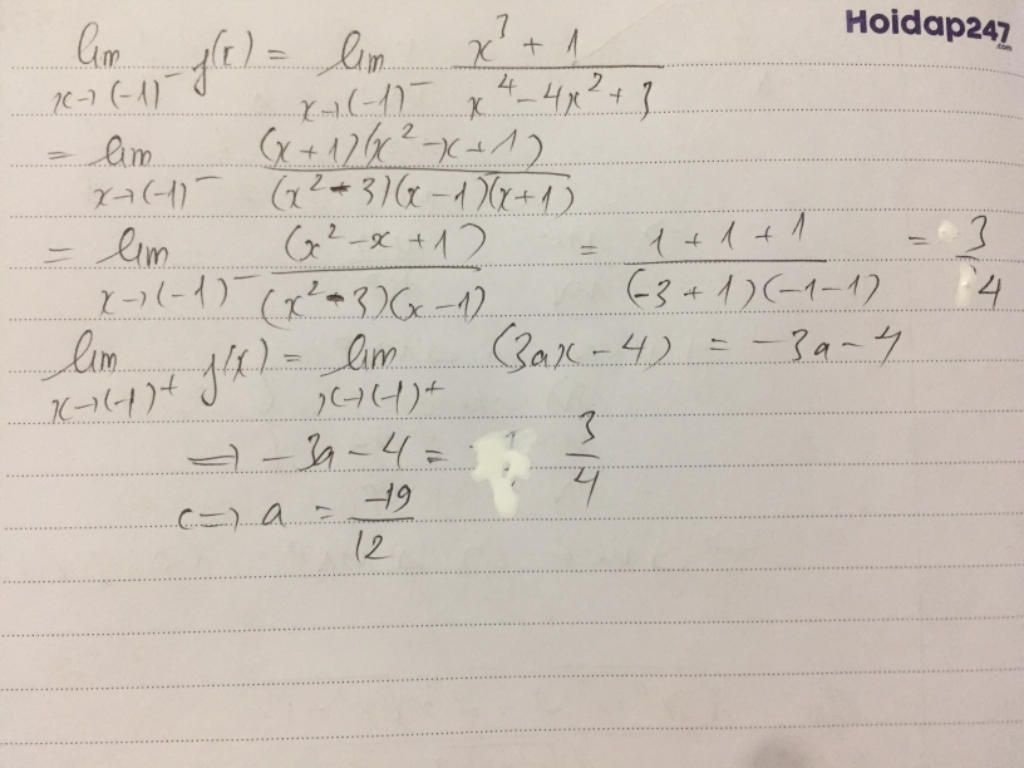 Hoidap247
.com
lim x→(-1)⁻ f(x) = lim x→(-1)⁻ (x³ + 1)/(x⁴ - 4x² + 3)
= lim x→(-1)⁻ (x + 1)(x² - x + 1)/(x² - 3)(x - 1)(x + 1)
= lim x→(-1)⁻ (x² - x + 1)/(x² - 3)(x - 1) = (1 + 1 + 1)/(-3 + 1)(-1 - 1) = 3/4
lim x→(-1)⁺ f(x) = lim x→(-1)⁺ (3ax - 4) = -3a - 4
⇒ -3a - 4 = 3/4
⇔ a = -19/12